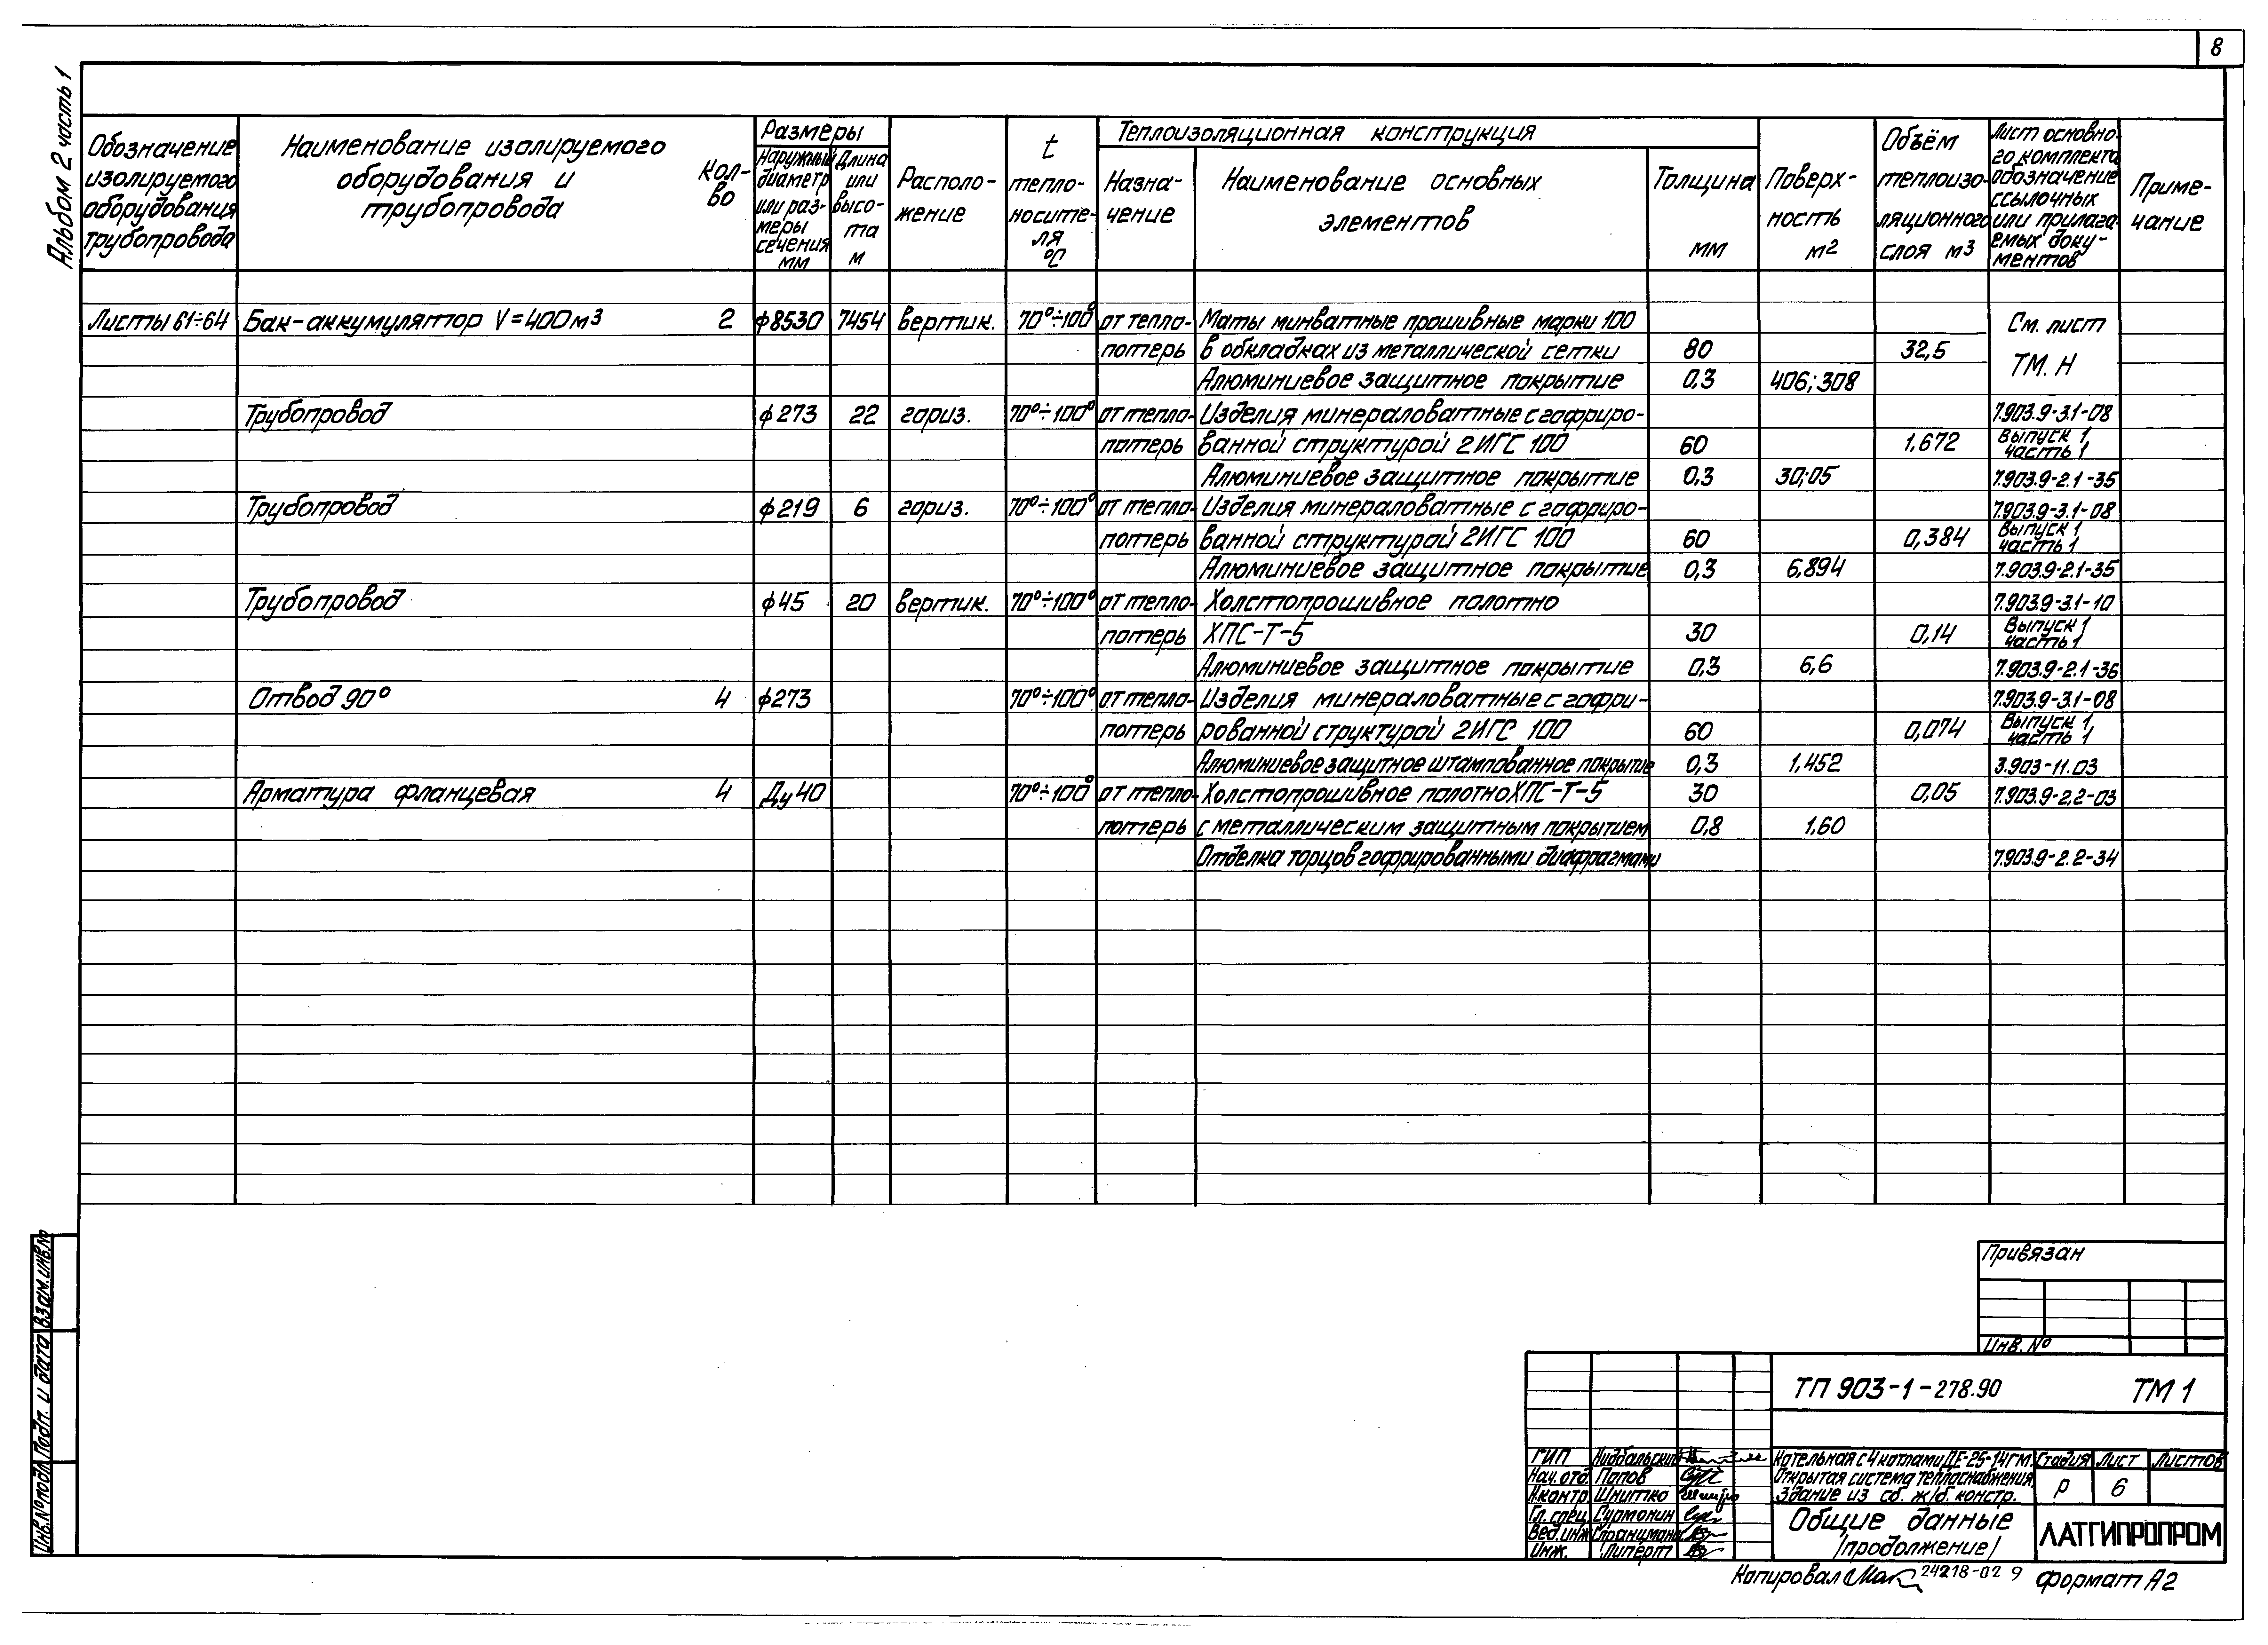 8
Альбом 2 часть 1
Обозначение изолируемого оборудования трубопровода
Наименование изолируемого оборудования и трубопровода
Кол-во
Размеры
Наружный диаметр или размеры сечения мм
Длина или высота м
Располо-жение
t тепло-носите-ля °С
Теплоизоляционная конструкция
Назна-чение
Наименование основных элементов
Толщина мм
Поверх-ность м2
Объём теплоизо-ляционного слоя м3
Лист основно-го комплекта обозначение ссылочных или прилага-емых доку-ментов
Приме-чание
Листы 61÷64 Бак-аккумулятор V=400м3 2 ф8530 7454 вертик. 70°÷100° от тепло- Маты минватные прошивные марки 100 См. лист
потерь в обкладках из металлической сетки 80 32,5 ТМ. Н
Алюминиевое защитное покрытие 0.3 406; 308
Трубопровод ф273 22 гориз. 70°÷100° от тепло- Изделия минераловатные с гофриро- 7.903.9-3.1-08
потерь ванной структурой 2ИГС 100 60 1,672 Выпуск 1 часть 1
Алюминиевое защитное покрытие 0.3 30;05 7.903.9-2.1-35
Трубопровод ф219 6 гориз. 70°÷100° от тепло- Изделия минераловатные с гофриро- 7.903.9-3.1-08
потерь ванной структурой 2ИГС 100 60 0,384 Выпуск 1 часть 1
Алюминиевое защитное покрытие 0,3 6,894 7.903.9-2.1-35
Трубопровод ф45 20 вертик. 70°÷100° от тепло- Холстопрошивное полотно 7.903.9-3.1-10
потерь ХПС-Т-5 30 0,14 Выпуск 1 часть 1
Алюминиевое защитное покрытие 0,3 6,6 7.903.9-2.1-36
Отвод 90° 4 ф273 70°÷100° от тепло- Изделия минераловатные с гофри- 7.903.9-3.1-08
потерь рованной структурой 2ИГС 100 60 0,074 Выпуск 1, часть 1
Алюминиевое защитное штампованное покрытие 0,3 1,452 3.903-11.03
Арматура фланцевая 4 Ду40 70°÷100° от тепло- Холстопрошивное полотно ХПС-Т-5 30 0,05 7.903.9-2,2-03
потерь с металлическим защитным покрытием 0,8 1,60
Отделка торцов гофрированными диафрагмами 7.903.9-2.2-34
Взам. инв. №
Подп. и дата
Инв. № подл.
Привязан
Инв. №
ТП 903-1-278.90 ТМ 1
ГИП Нидбальский
Нач. отд. Попов
Н.контр. Шнитко
Гл. спец. Сурмонин
Вед. инж.
Инж. Липерт
Котельная с 4 котлами ДЕ-25-14ГМ.
Открытая система теплоснабжения,
Здание из сб. ж/б. констр.
Стадия Лист Листов
Р 6
Общие данные
/продолжение/
ЛАТГИПРОПРОМ
Копировал 24218-02 9 Формат А2